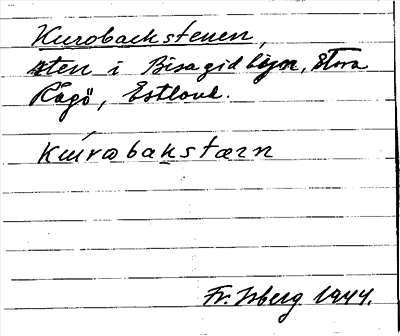 Kurobackstenen,
sten i Bisagid byn, Stora
Rågö, Estland.
kurobakstæn
Fr. Isberg 1944.